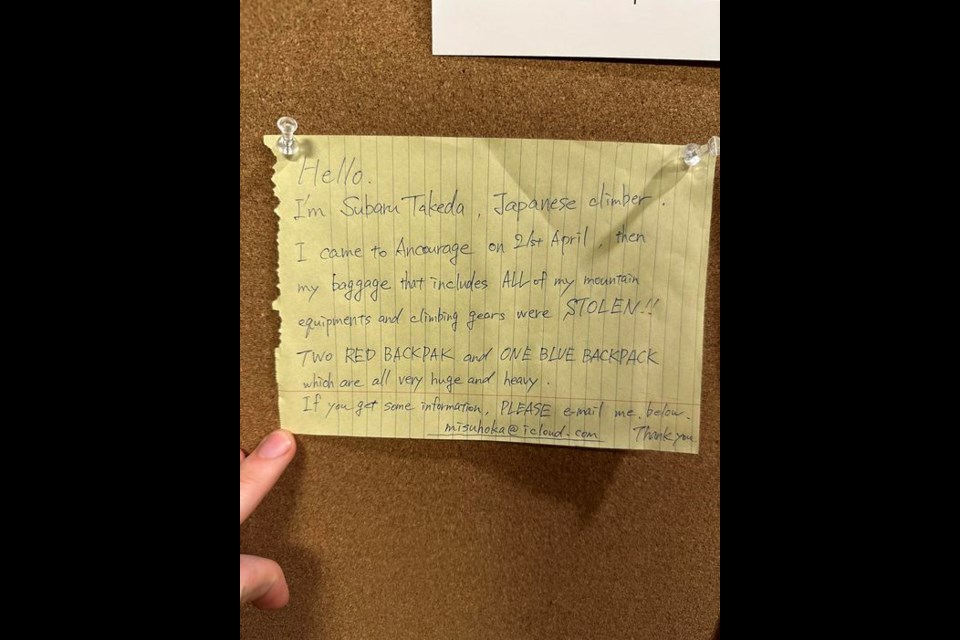 Hello.
I'm Subaru Takeda, Japanese climber.
I came to Ancourage on 21st April, then
my baggage that includes ALL of my mountain
equipments and climbing gears were STOLEN!!
TWO RED BACKPAK and ONE BLUE BACKPACK
which are all very huge and heavy.
If you get some information, PLEASE e-mail me below.
misuhoka@icloud.com Thank you